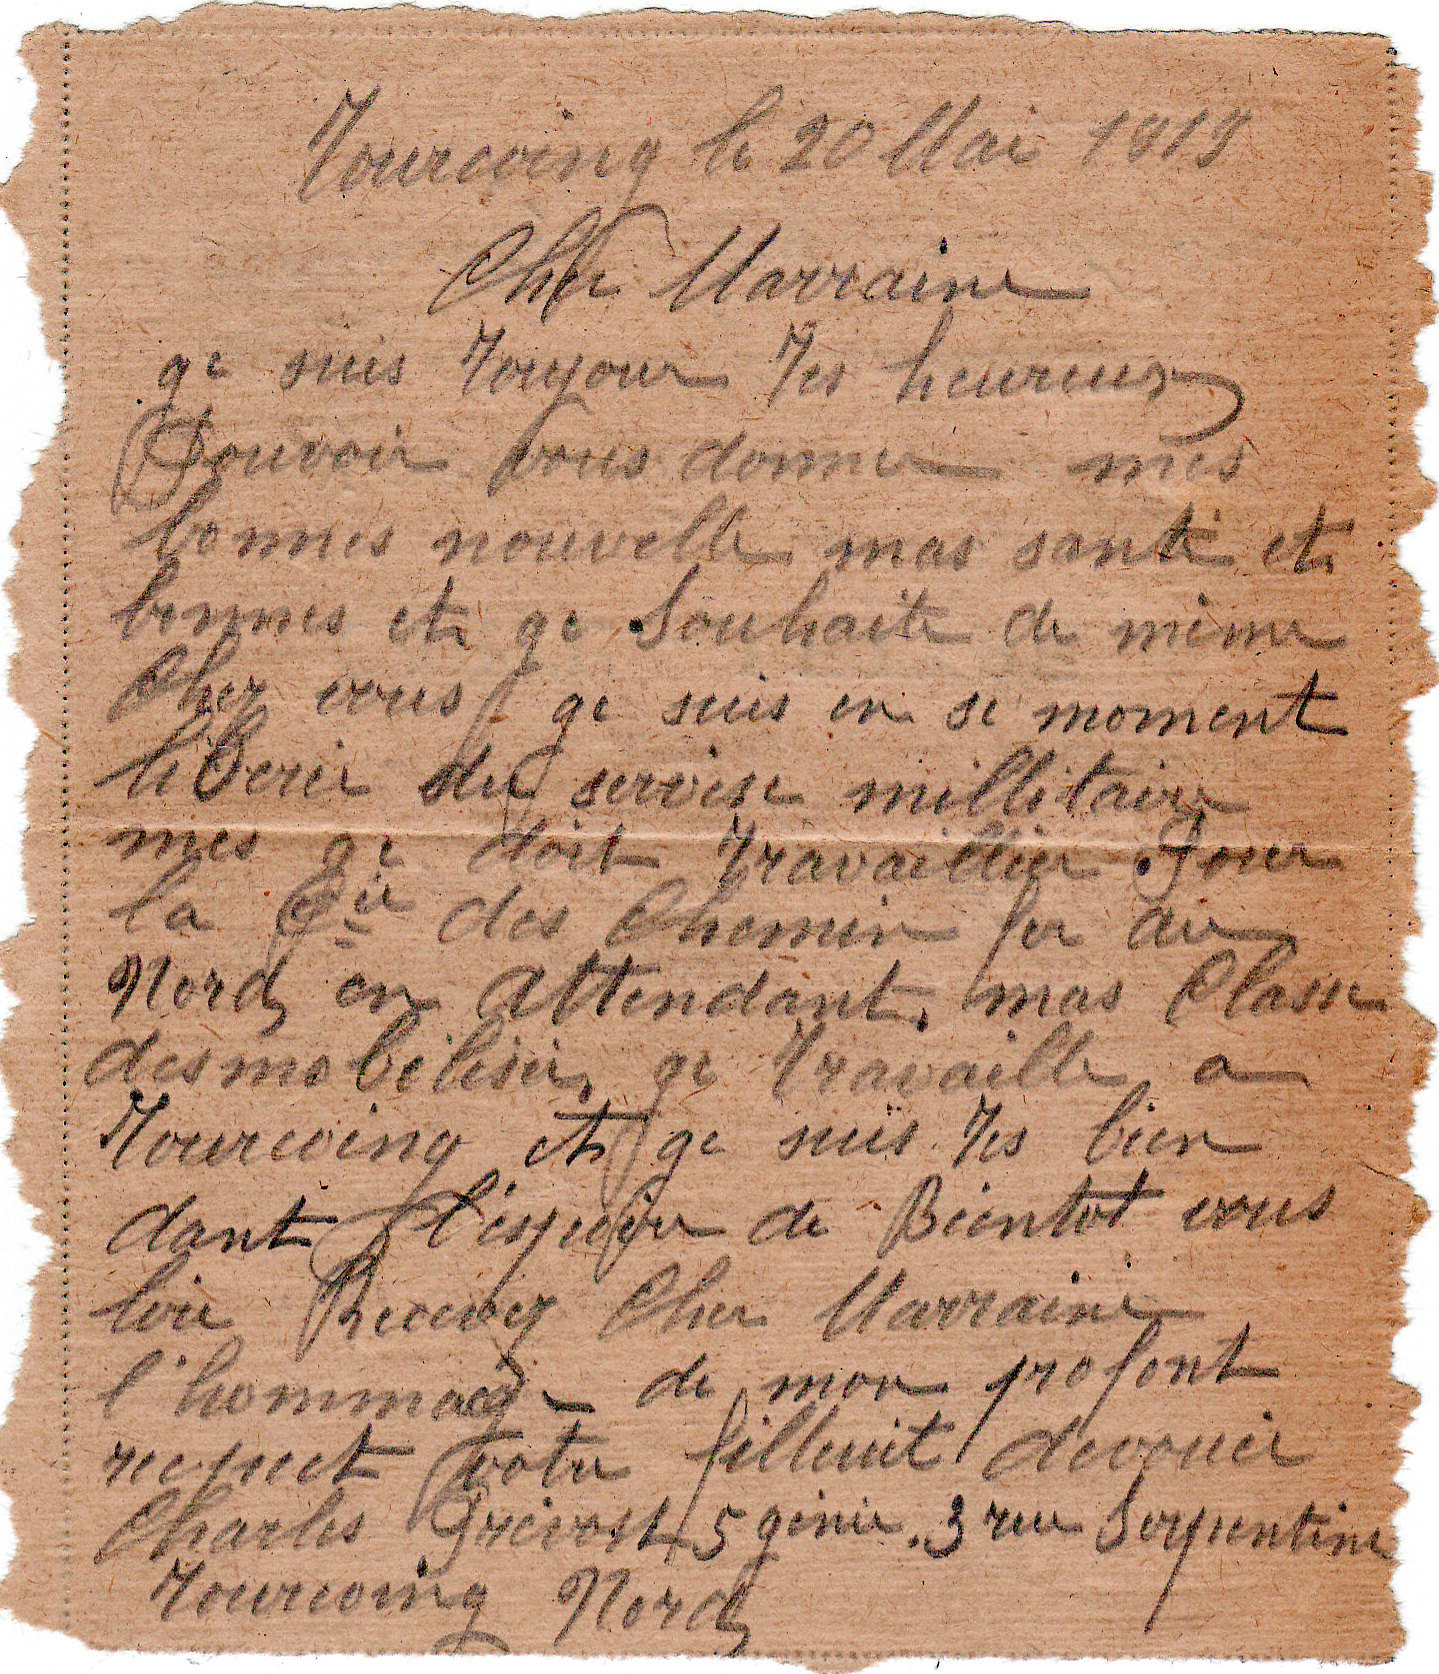 Tourcoing le 20 Mai 1919
Cher Marraine
ge suis Toujour Tes heureux
Pouvoir vous donner mes
bonnes nouvelle mas santé et
bonnes et ge Souhaite de même
Chez vous ge suis en se moment
liberér du servise millitaire
mes ge doit Travaillier Pour
la Cie des Chemin fer du
Nord en Attendant mas Classe
desmobélisér, ge Travaille a
Tourcoing et ge suis Tes bien
dant l'espoir de Bientot vous
lire Recevez Cher Marraine
l'hommage de mon profont
respect Votre filleuit devouér
Charles Prévost 5 génie. 3 rue Serpentine
Tourcoing Nord